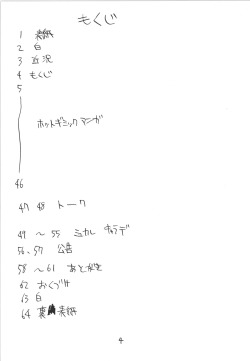 もくじ
1 表紙
2 白
3 近況
4 もくじ
5
ホットギミックマンガ
46
47 48 トーク
49 ～ 55
56、57 公告
58 ～ 61 あとがき
62 おくづけ
63 白
64 裏表紙
4